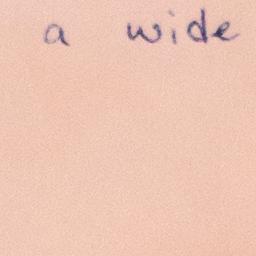 a wide